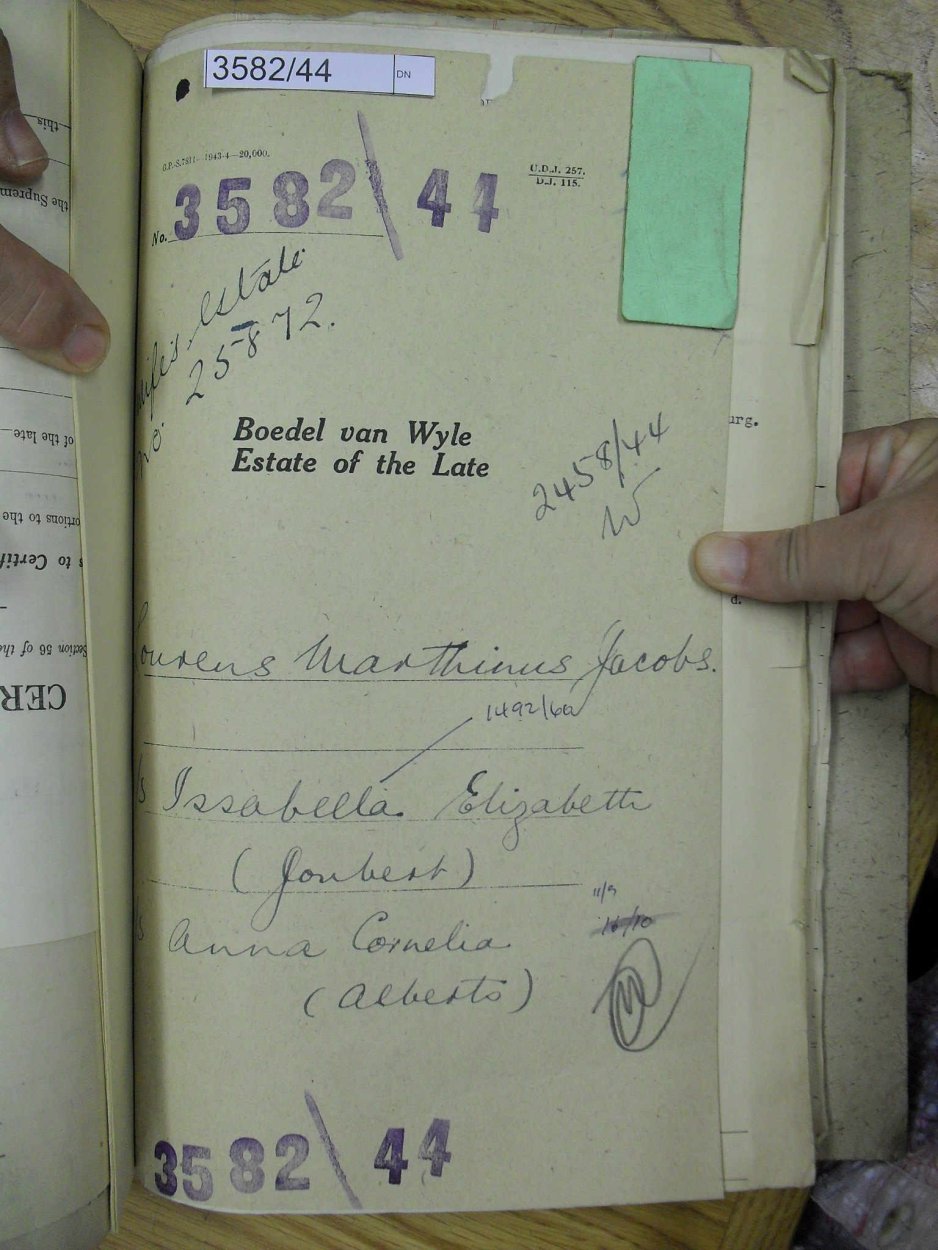 3582/44 DN
G.P.-S.7811—1943-4—20,000.
U.D.J. 257.
D.J. 115.
No. 3582\44
Wife's Estate
No. 25872.
Boedel van Wyle
Estate of the Late
2458/44
urg.
d.
Lourens Marthinus Jacobs.
1492/60
s Issabella Elizabeth
(Joubert)
11/9
s Anna Cornelia
16/10
(Alberts)
3582\44
this
the Suprem
of the late
ortions to the
s to Certifi
Section 56 of the
CER